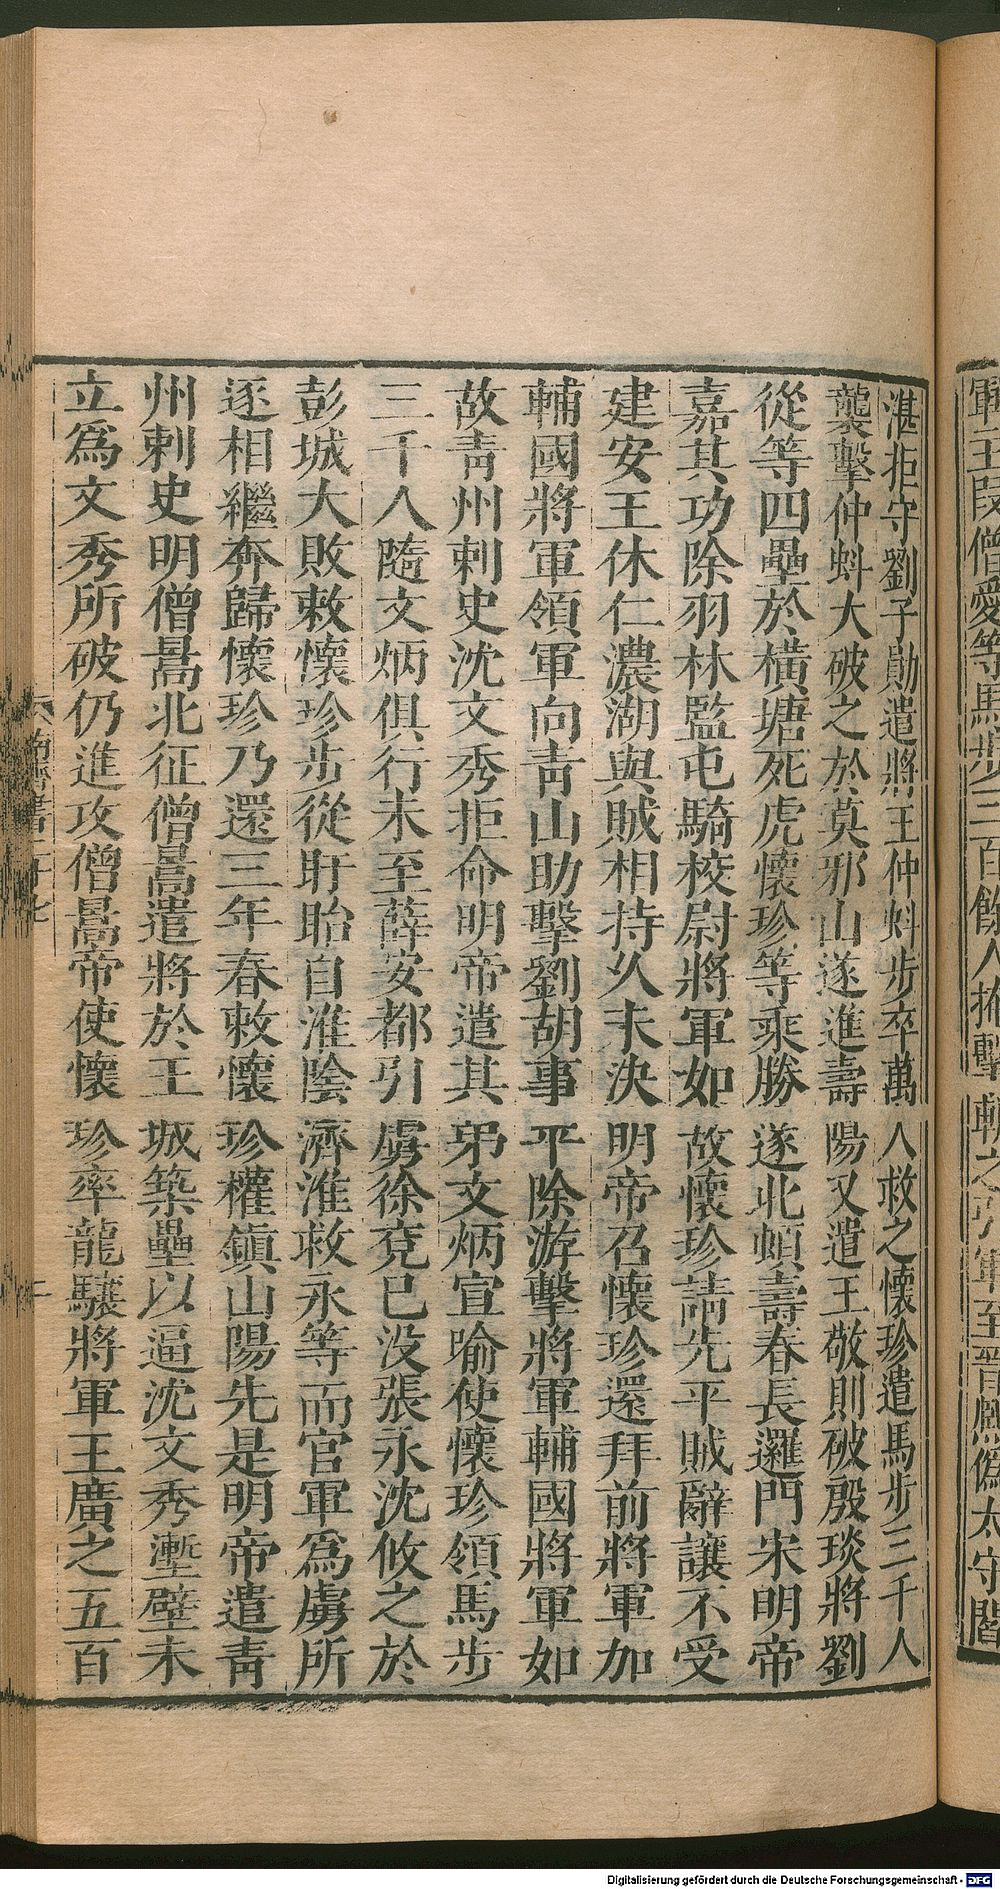 湛拒守劉子勛遣將王仲蚪步卒萬人救之懷珍遣馬步三千人
襲擊仲蚪大破之於莫邪山遂進壽陽又遣王敬則破殷琰將劉
從等四壘於橫塘死虎懷珍等乘勝遂北頓壽春長邏門宋明帝
嘉其功除羽林監屯騎校尉將軍如故懷珍請先平賊辭讓不受
建安王休仁濃湖與賊相持久未決明帝召懷珍還拜前將軍加
輔國將軍領軍向青山助擊劉胡事平除游擊將軍輔國將軍如
故青州刺史沈文秀拒命明帝遣其弟文炳宣喻使懷珍領馬步
三千人隨文炳俱行未至薛安都引虜徐兗已没張永沈攸之於
彭城大敗敕懷珍步從盱眙自淮陰濟淮救永等而官軍爲虜所
逐相繼奔歸懷珍乃還三年春敕懷珍權鎮山陽先是明帝遣青
州刺史明僧暠北征僧暠遣將於王城築壘以逼沈文秀壍壁未
立爲文秀所破仍進攻僧暠帝使懷珍率龍驤將軍王廣之五百
南齊書二十七
軍王段僧愛等馬步三百餘人掩擊斬之引軍至晉熙僞太守閻
Digitalisierung gefördert durch die Deutsche Forschungsgemeinschaft - DFG